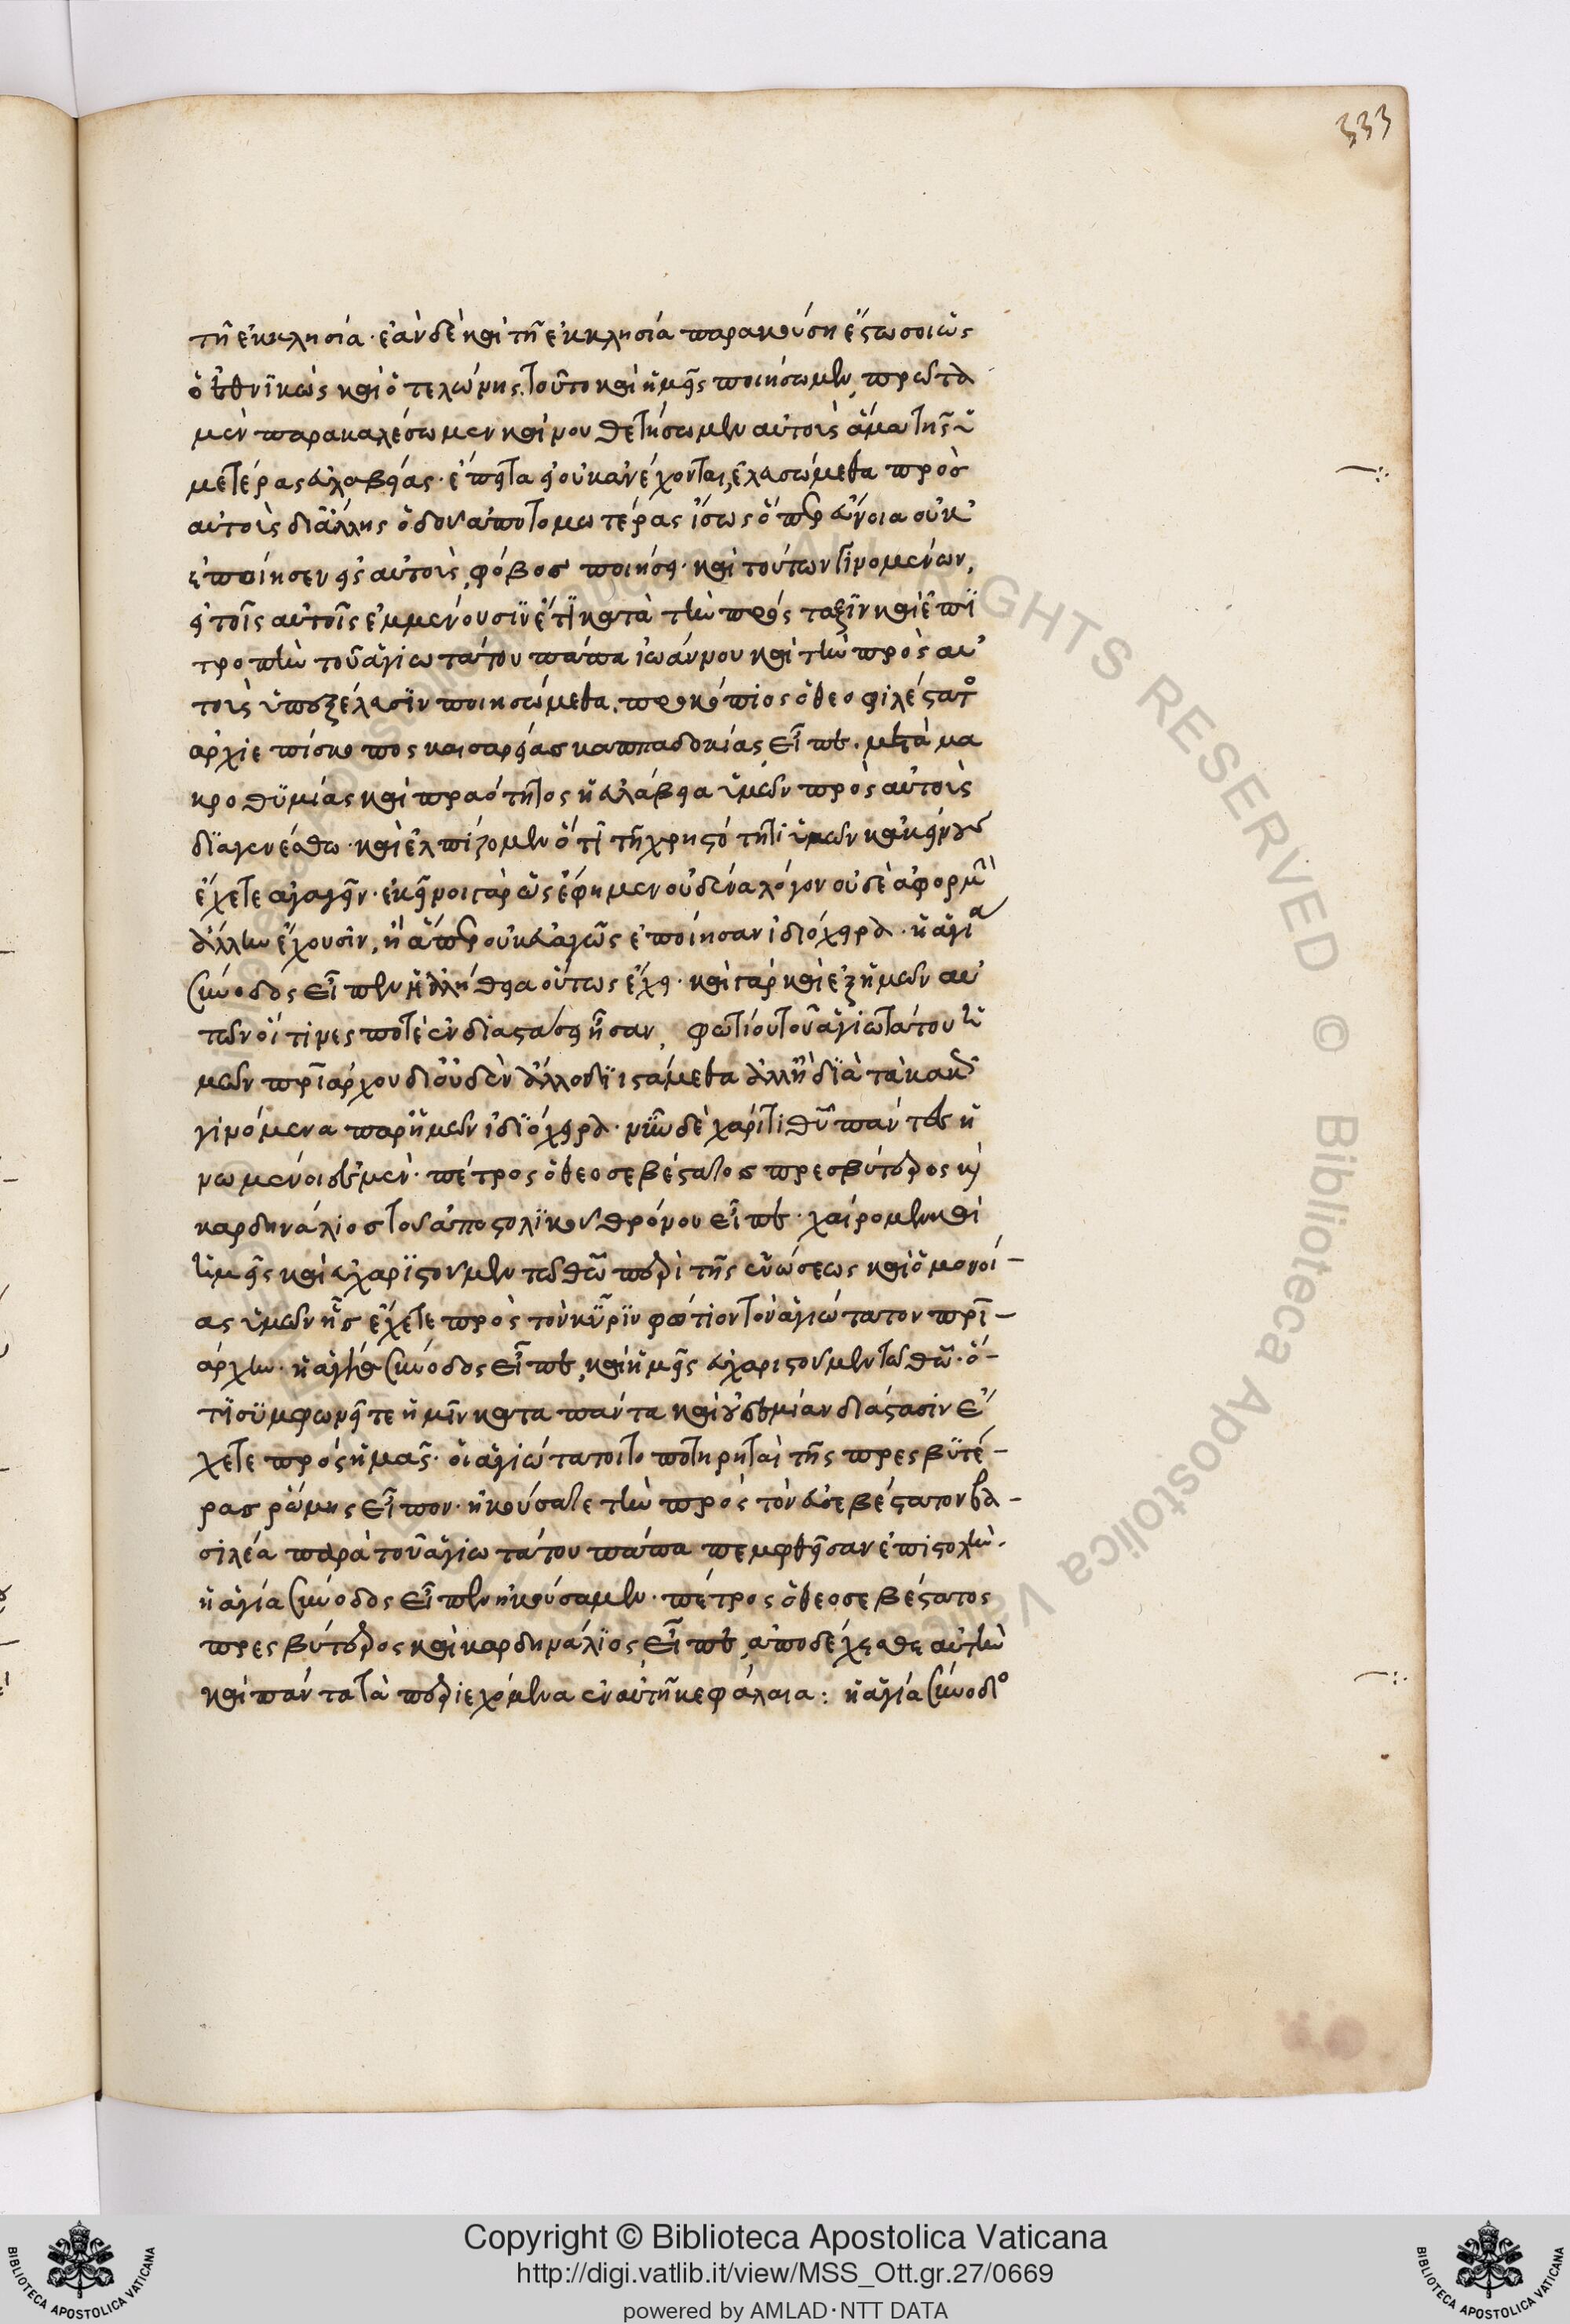 333
τῆ ἐκκλησία· ἐὰν δὲ καὶ τῆ ἐκκλησία παρακούση ἔστω σοι ὡς
ὁ ἐθνικὼς καὶ ὁ τελώνης. τοῦτο καὶ ἡμεῖς ποιήσωμεν, πρῶτα
μὲν παρακαλέσωμεν καὶ νουθετήσωμεν αὐτοὺς ἅμα τῆς ὑ
μετέρας εὐλαβείας· ἔπειτα εἰ οὐκ ἀνέχονται, ἐλασώμεθα πρὸσ
αὐτοὺς δι ἄλλης ὁδοῦ ἀποτομωτέρας ἴσως ὅπερ εὔνοια οὐκ
ἐποίησεν εἰς αὐτοὺς, φόβοσ ποιήσει· καὶ τούτων γινομένων,
εἰ τοῖς αὐτοῖς ἐμμένουσιν ἔτι κατὰ τὴν πρόσταξιν καὶ ἐπι
τροπὴν τοῦ ἁγιωτάτου πάπα ἰωάννου καὶ τὴν πρὸς αὐ
τοὺς ὑποξέλασιν ποιησώμεθα. προκόπιος ὁ θεοφιλέστατο
ἀρχιεπίσκοπος καισαρείασ καππαδοκίας εἶπεν. μετὰ μα
κροθυμίας καὶ πραότητος ἡ εὐλάβεια ὑμῶν πρὸς αὐτοὺς
διαγενέσθω· καὶ ἐλπίζομεν ὅτι τῆ χρηστότητι ὑμῶν κἀκείνους
ἔχετε ἀγαγεῖν· ἐκεῖνοι γὰρ ὡς ἔφημεν οὐδένα λόγον οὐδὲ ἀφορμὴν
ἄλλην ἔχουσιν, ἢ ἅπερ οὐκ εὐαγῶς ἐποίησαν ἰδιόχειρα· ἡ ἁγία
σύνοδος εἶπεν ἡ ἀλήθεια οὕτως ἔχει· καὶ γὰρ καὶ ἐξ ἡμῶν αὐ
τῶν οἵτινες ποτὲ ἐν διαστάσει ἦσαν, φωτίου τοῦ ἁγιωτάτου ἡ
μῶν πριάρχου δι οὐδὲν ἄλλο διιστάμεθα ἀλλ ἢ διὰ τὰ κακῶς
γινόμενα παρ ἡμῶν ἰδιόχειρα· νῦν δὲ χάριτι θυ πάντες ἡ
νωμένοι ἐσμέν· πέτρος ὁ θεοσεβέστατοσ πρεσβύτερος καὶ
καρδηνάλιοσ τοῦ ἀποστολικοῦ θρόνου εἶπεν· χαίρομεν καὶ
ἡμεῖς καὶ εὐχαριστοῦμεν τῶ θω περὶ τῆς ἑνώσεως καὶ ὁμονοί-
ας ὑμῶν ἧσ ἔχετε πρὸς τὸν κύριν φώτιον τὸν ἁγιώτατον πρι-
άρχην· ἡ ἁγία σύνοδος εἶπεν, καὶ ἡμεῖς εὐχαριστοῦμεν τῶ θω· ὅ-
τι συμφωνεῖτε ἡμῖν κατα πάντα καὶ οὐδεμίαν διάστασιν ἔ
χετε πρὸς ἡμᾶς· οἱ ἁγιώτατοι τοποτηρηταὶ τῆς πρεσβυτέ-
ρασ ῥώμης εἶπον· ἠκούσατε τὴν πρὸς τὸν εὐσεβέστατον βα-
σιλέα παρὰ τοῦ ἁγιωτάτου πάπα πεμφθεῖσαν ἐπιστολὴν.
ἡ ἁγία σύνοδος εἶπεν ἠκούσαμεν· πέτρος ὁ θεοσεβέστατος
πρεσβύτερος καὶ καρδηνάλιος εἶπεν, ἀποδέχεσθε αὐτὴν
καὶ πάντα τὰ περιεχόμενα ἐν αὐτῆ κεφάλαια: ἡ ἁγία σύνοδο
Copyright © Biblioteca Apostolica Vaticana
http://digi.vatlib.it/view/MSS_Ott.gr.27/0669
powered by AMLAD·NTT DATA